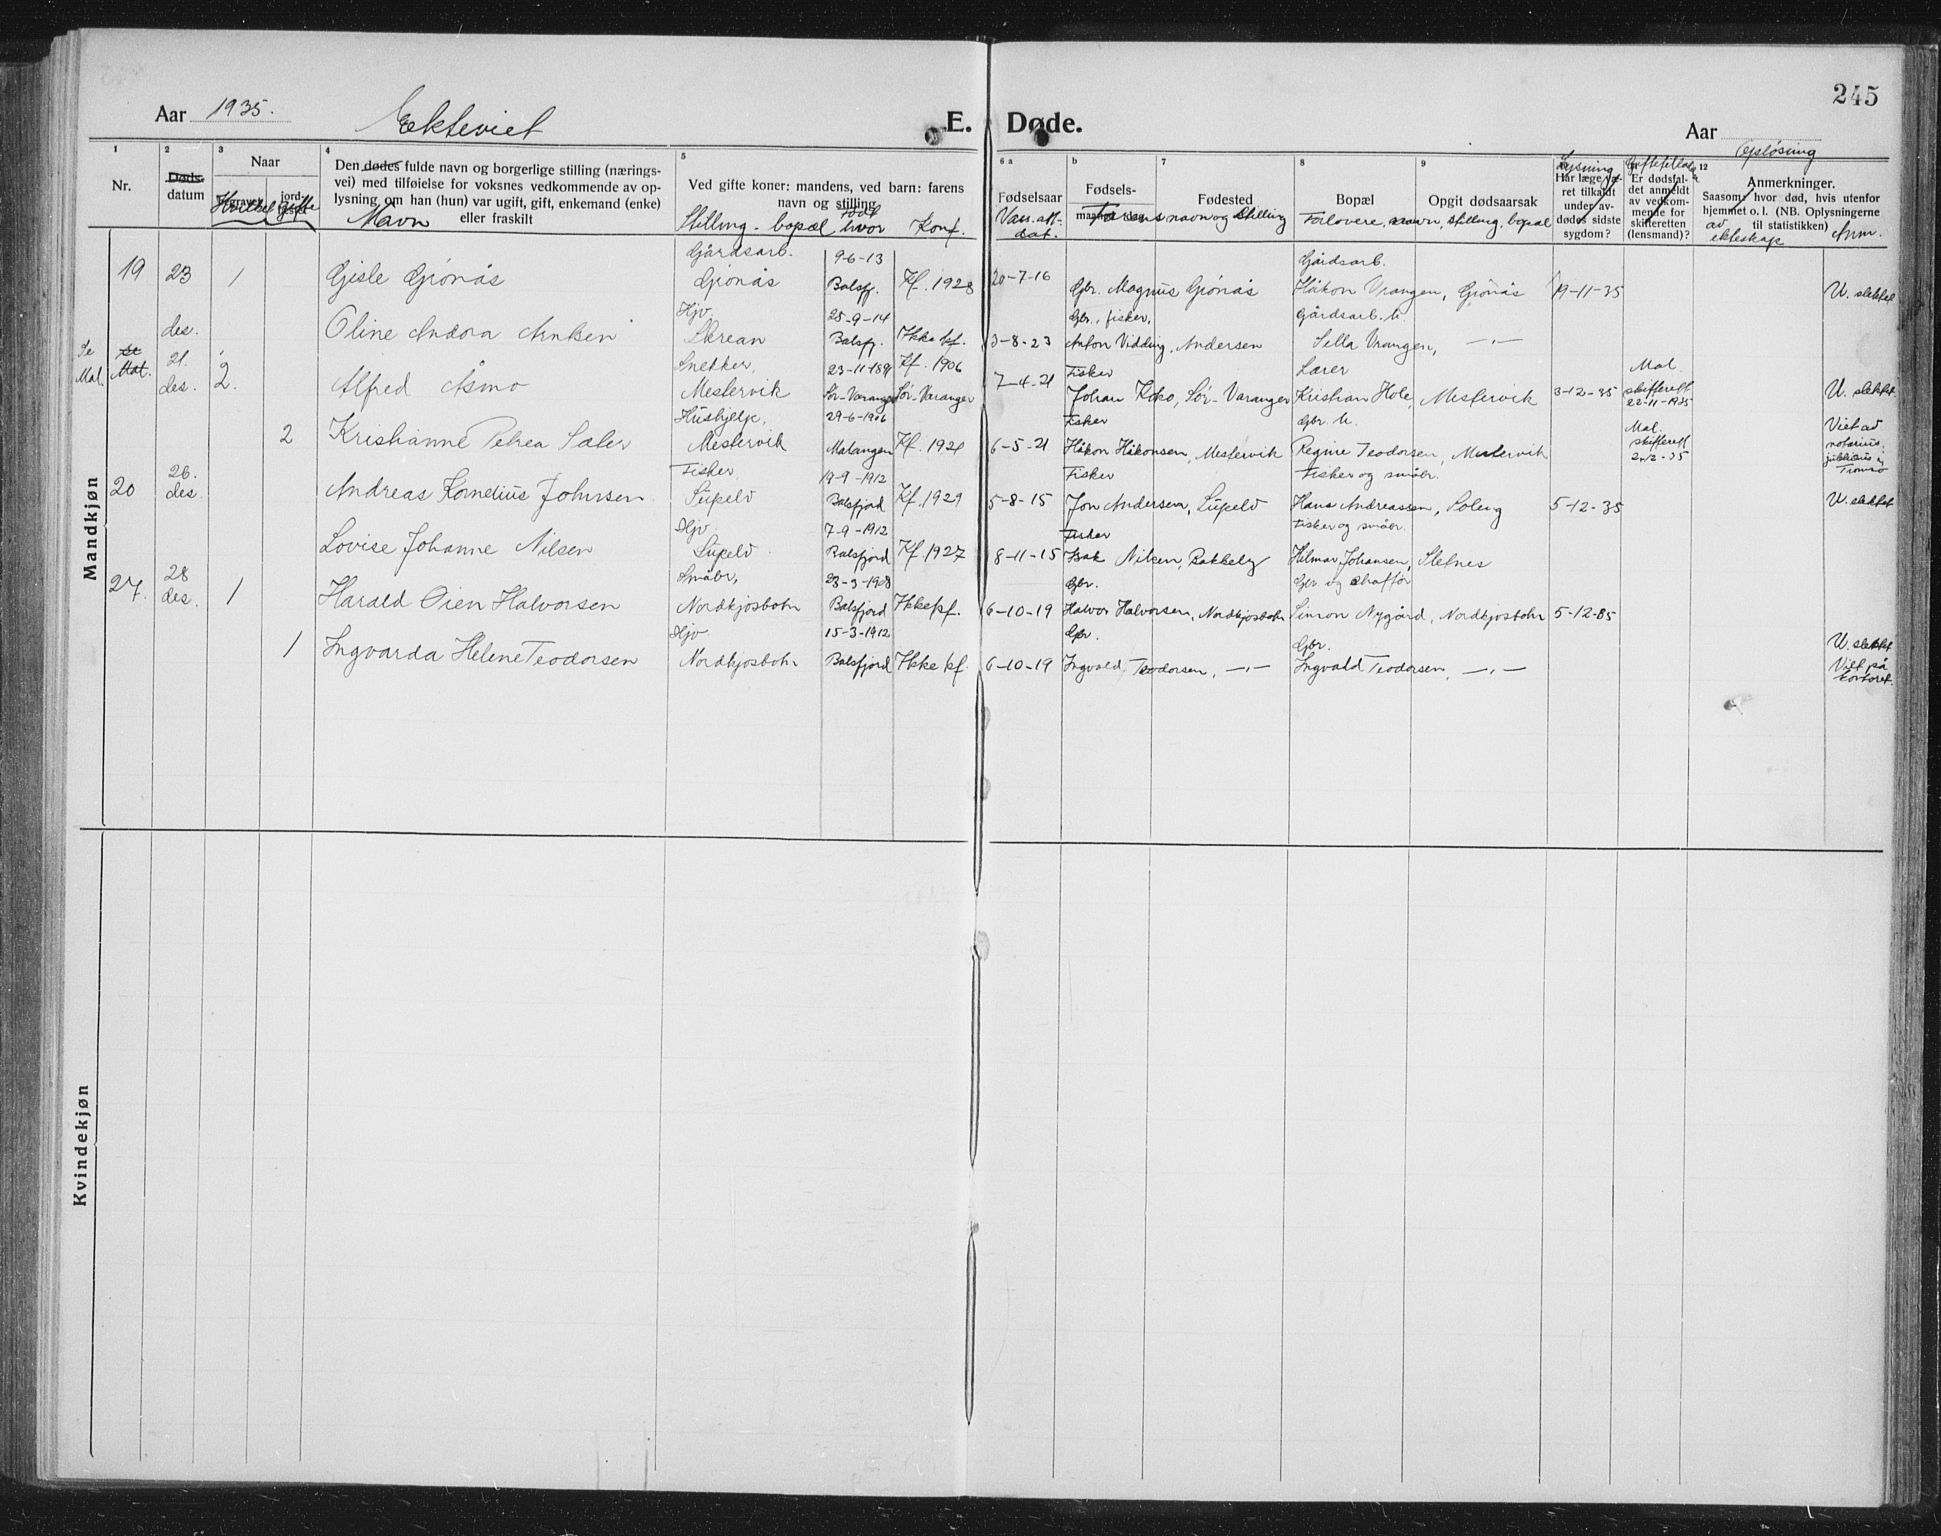 245
Aar 1935.
Ekteviet
E. Døde.
Aar
1 2 3 4 5 6 a b 7 8 9 12
Nr.
Døds-
datum
Naar
begravet
jord-
fæstet
Hvilket Gifte
Den dødes fulde navn og borgerlige stilling (nærings-
vei) med tilføielse for voksnes vedkommende av op-
lysning om han (hun) var ugift, gift, enkemand (enke)
eller fraskilt
Navn
Ved gifte koner: mandens, ved barn: farens
navn og stilling
Stilling - bopæl
født
hvor
Konf.
Fødselsaar
Vax. att.
dat.
Fødsels-
Fødested
Farens navn og stilling
Bopæl
Opgit dødsaarsak
Forlovere, navn, stilling, bopæl
Lysning
Har læge væ-
ret tilkaldt
under av-
dødes sidste
sygdom?
Er dødsfal-
det anmeldt
av vedkom-
mende for
skifteretten
(lensmand)?
Opløsning
av
ekteskap
Anmerkninger.
Saasom: hvor død, hvis utenfor
hjemmet o. l. (NB. Oplysningerne
til statistikken)
Anm.
Mandkjøn
19 23 des. 1 Gisle Grønås Gårdsarb. Grønås 9-6-13 Balsfj. Kf. 1928 20-7-16 Gbr. Magnus Grønås Gårdsarb. Håkon Vrangen, Grønås 19-11-35 U. slektet
Oline Andora Hjv. 25-9-14 Balsfj. Ikke kf. 3-8-23 Gbr., fisker, Anton Vidding, Andersen Gårdsarb. h. Sella Vrangen, —„—
Se Mal. Mal. 21. des. 2. Alfred Åsmo Snekker, Mestervik 23-11-189 Sør-Varanger Kf. 1906 Sør-Varanger 7-4-21 Fisker Johan Koko, Sør-Varanger Lærer Kristian Hole, Mestervik 3-12-35 Mal. skifterett 22-11-1935 U. slektet
2 Kristianne Petrea Sæter Hushjelp, Mestervik 29-6-1906 Malangen Kf. 1921 6-5-21 Fisker Håkon Håkonsen, Mestervik Gbr. h. Regine Teodorsen, Mestervik Mal. skifterett 2-12-35 Viet av notarius publicus i Tromsø
20 26. des. Andreas Kornelius Johnsen Fisker Slipeld 19-9-1912 Balsfjord Kf. 1929 5-8-15 Fisker Jon Andersen, Slipeld Fisker og småbr. Hans Andreassen, Soleng 5-12-35 U. slektet
Lovise Johanne Nilsen Hjv. Slipeld 7-9-1912 Balsfjord Kf. 1927 8-11-15 Fisker Isak Nilsen, Rakkeby Fisker og småbr. Hilmar Johansen, Slelnes
27. 28 des. 1 Harald Oien Halvorsen Småbr, Nordkjosbotn 23-3-1908 Balsfjord Ikke kf. 6-10-19 Gbr. Halvor Halvorsen, Nordkjosbotn Gbr. og chaffør Simon Nygård, Nordkjosbotn 5-12-35
1 Ingvarda Helene Teodorsen Hjv. Nordkjosbotn 15-3-1912 Balsfjord Ikke kf. 6-10-19 Gbr. Ingvald Teodorsen, —„— Gbr. Ingvald Teodorsen, —„— U. slektet Viet på kontoret.
Kvindekjøn